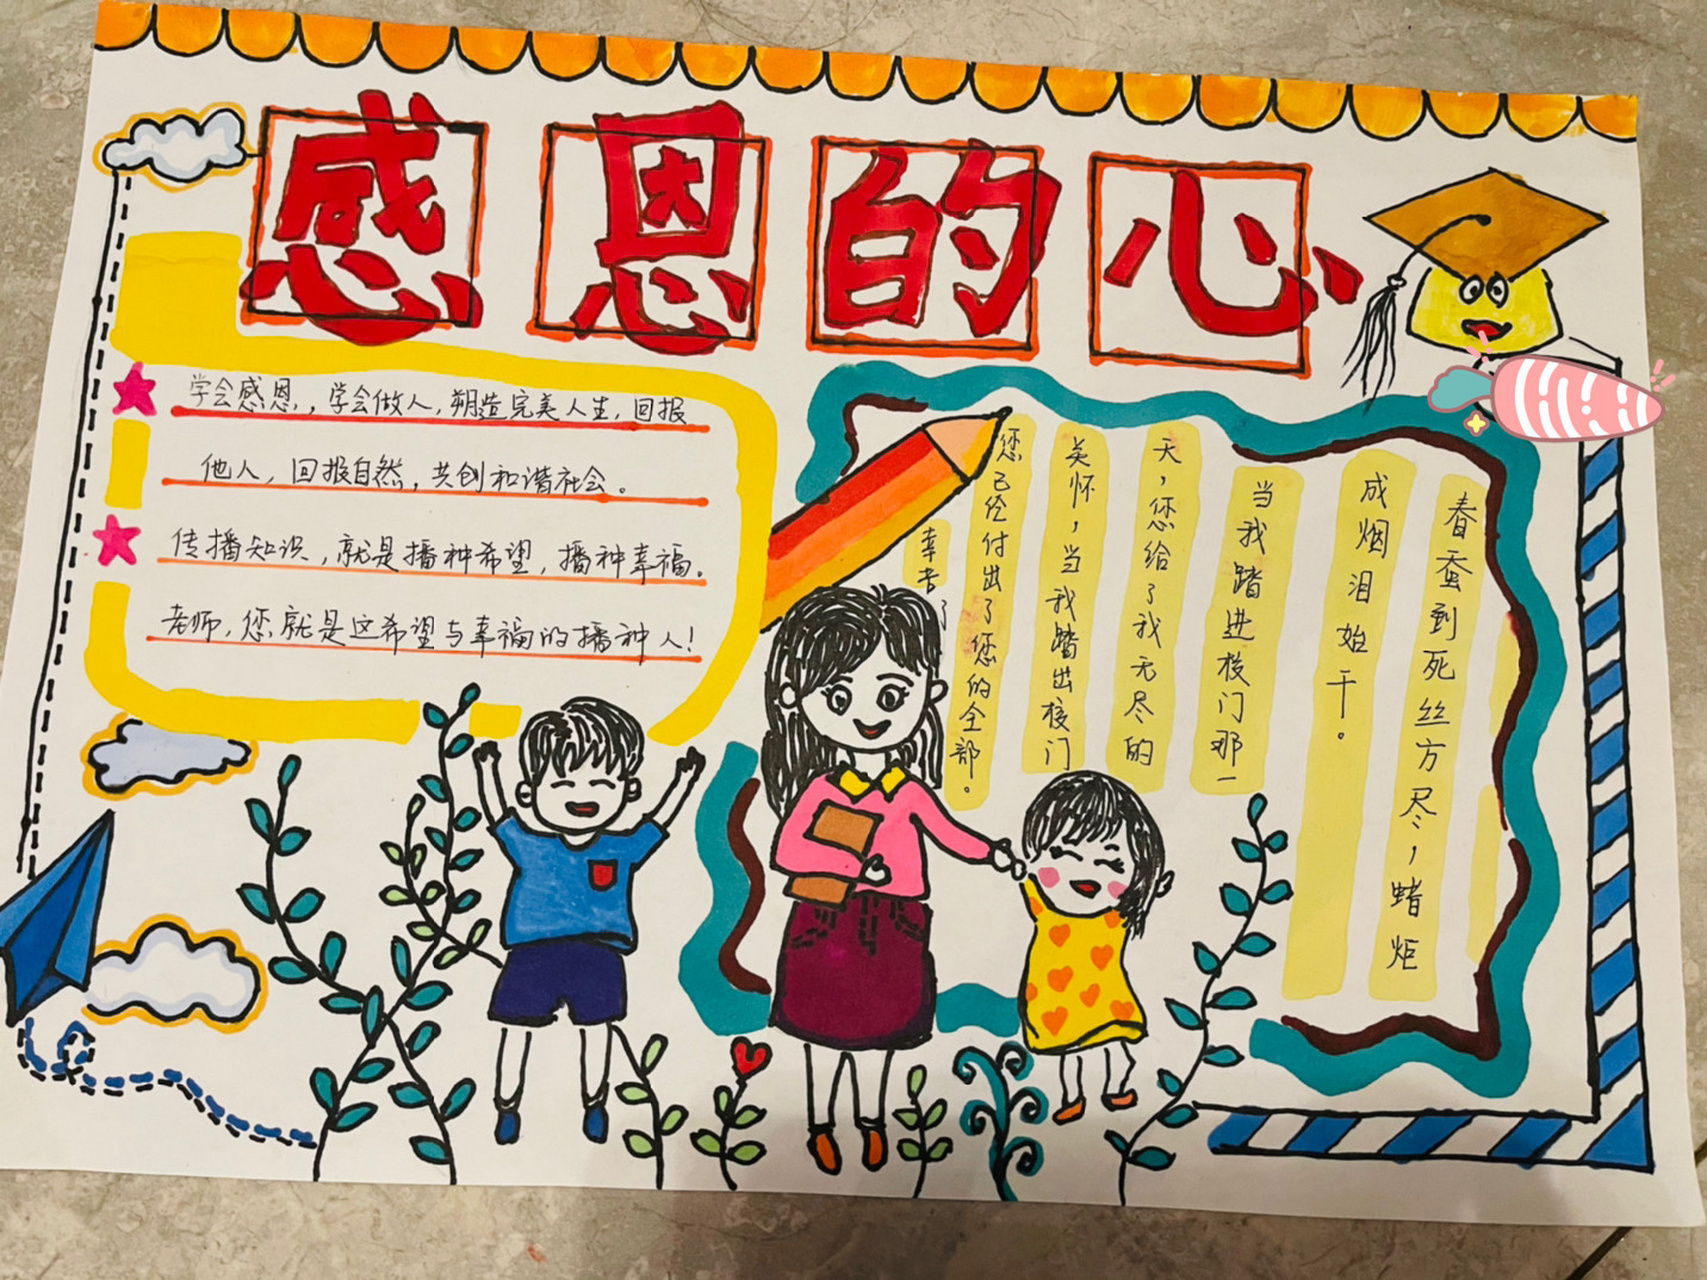 感恩的心
学会感恩，学会做人，朔造完美人生，回报
他人，回报自然，共创和谐社会。
传播知识，就是播种希望，播种幸福。
老师，您就是这希望与幸福的播种人！
春蚕到死丝方尽，蜡炬
成烟泪始干。
当我踏进校门那一
天，您给了我无尽的
关怀，当我踏出校门
您已经付出了您的全部。
幸苦了